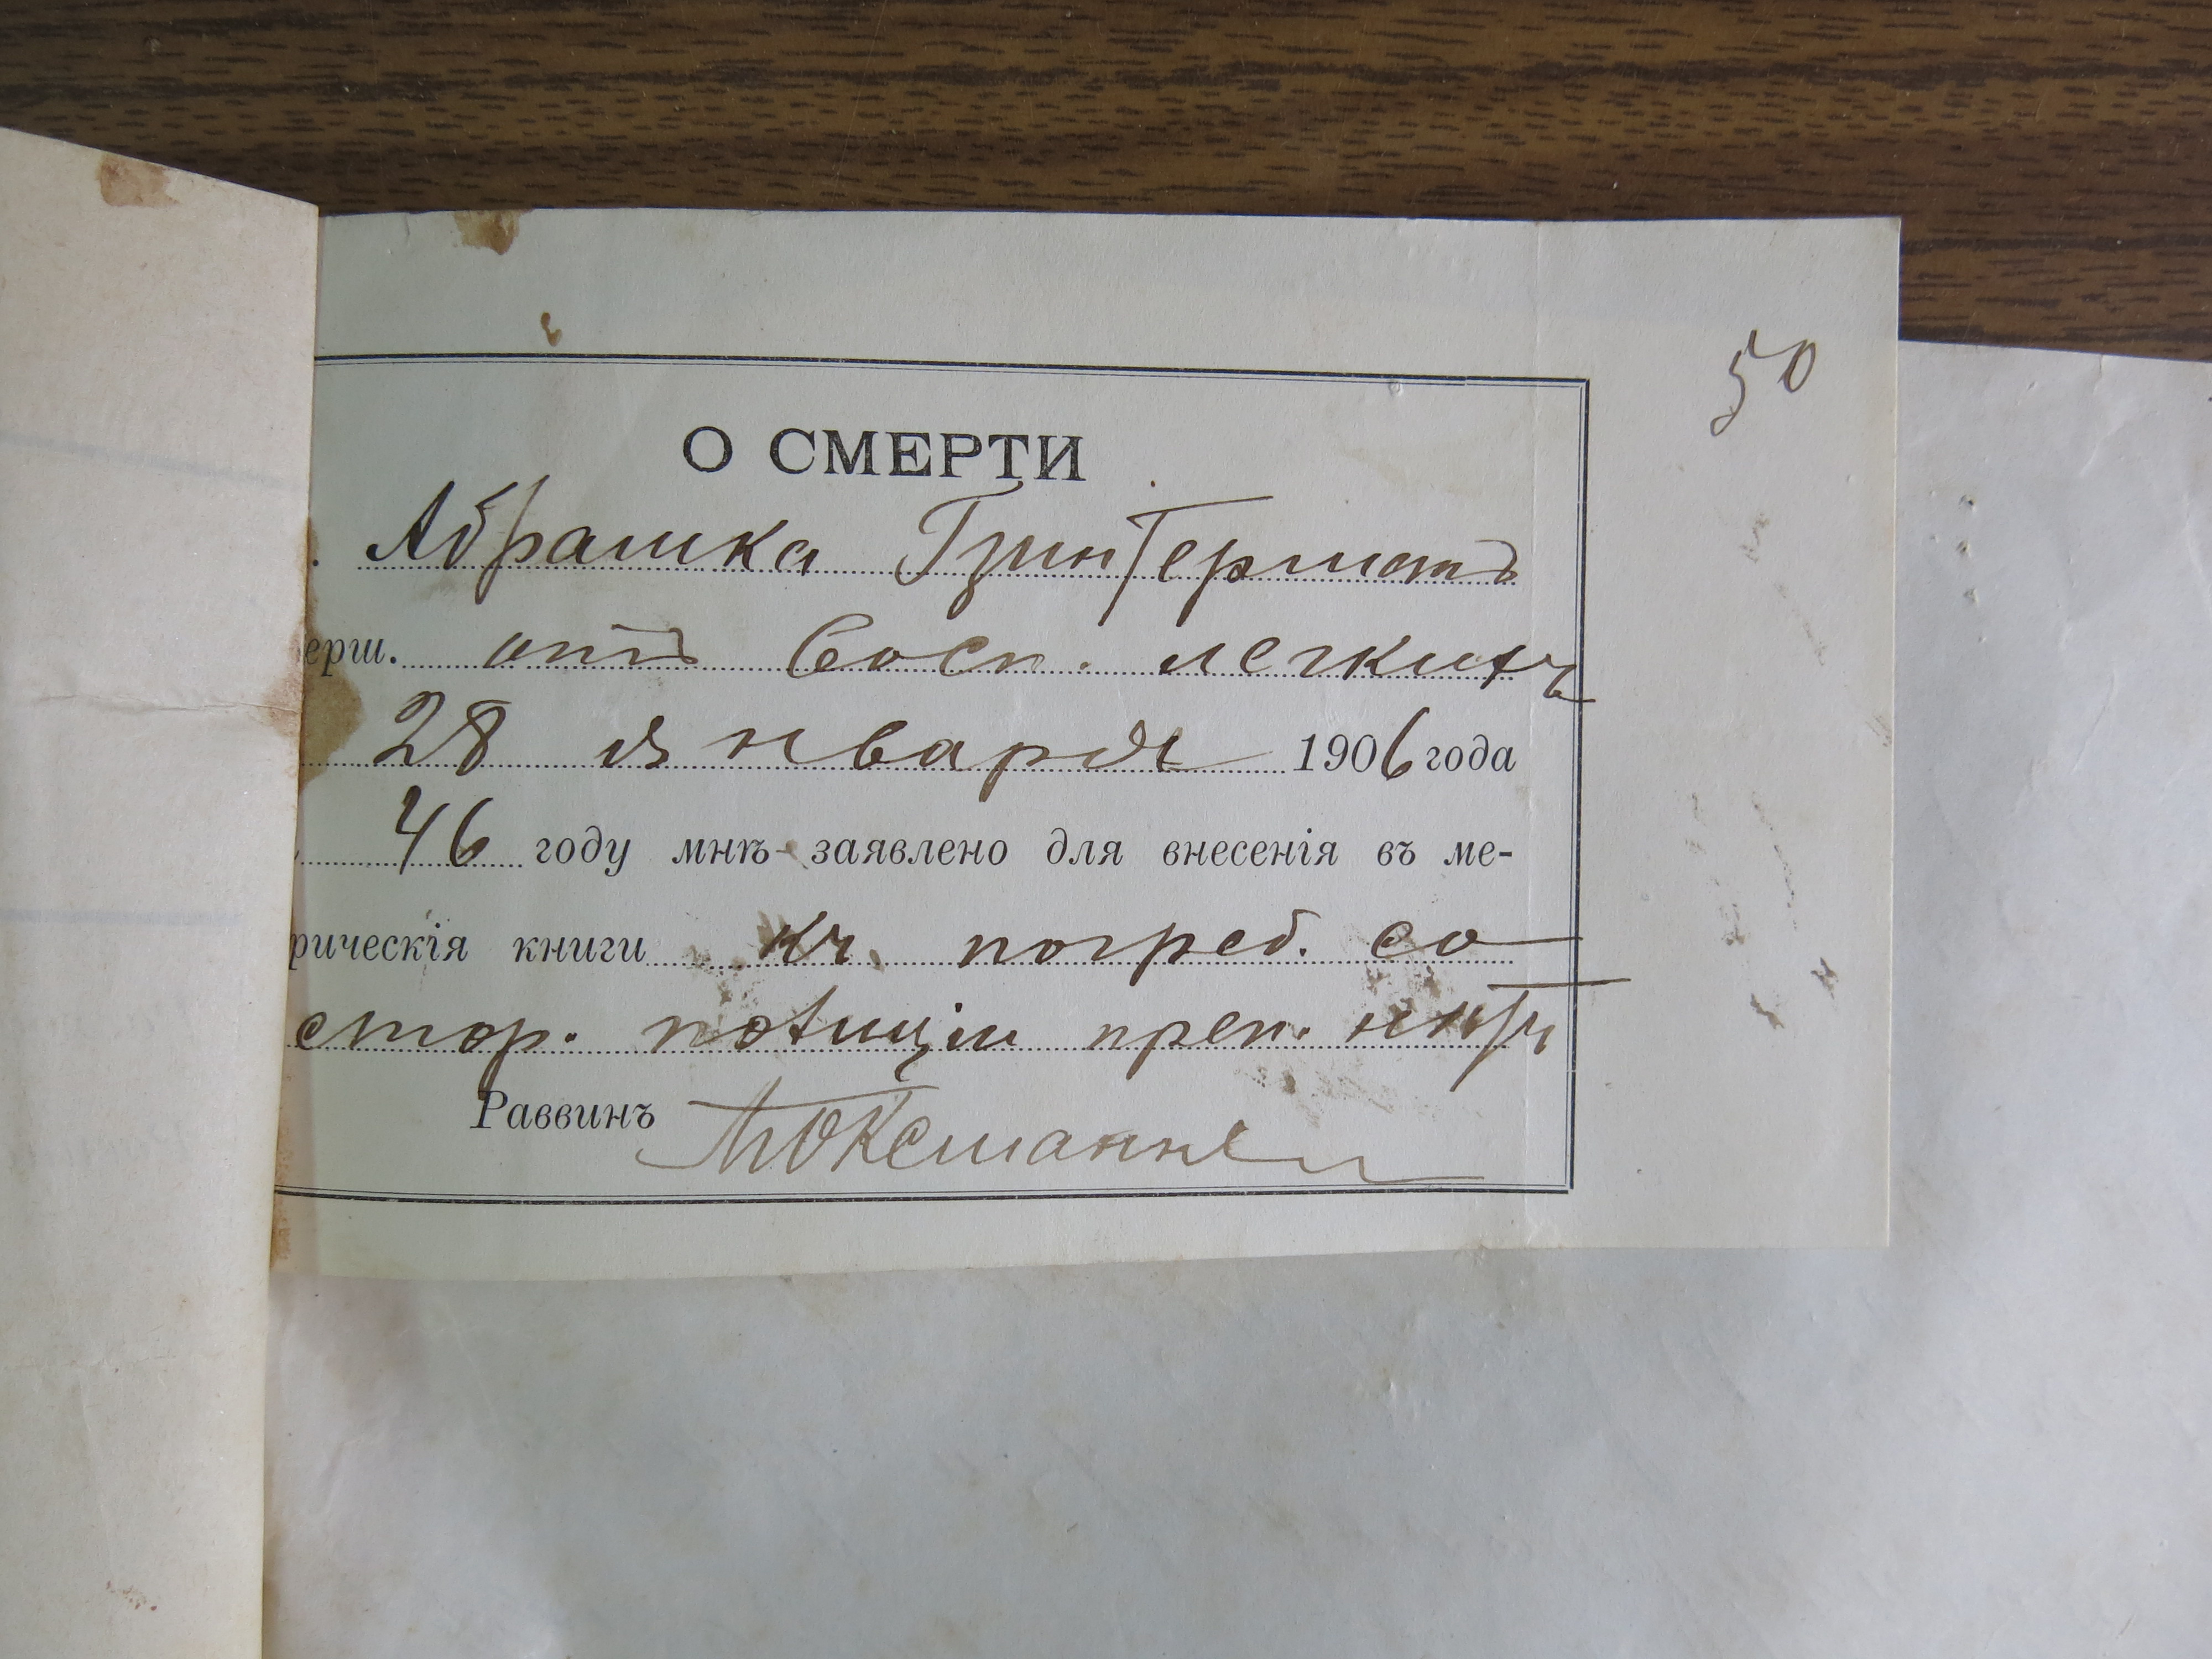 50
О СМЕРТИ
. Абрашка
ерш. отъ Восп. легкихъ
28 января 1906 года
46 году мнѣ заявлено для внесенія въ ме-
рическія книги къ погреб. со
стор. полиціи преп. нѣтъ
Раввинъ